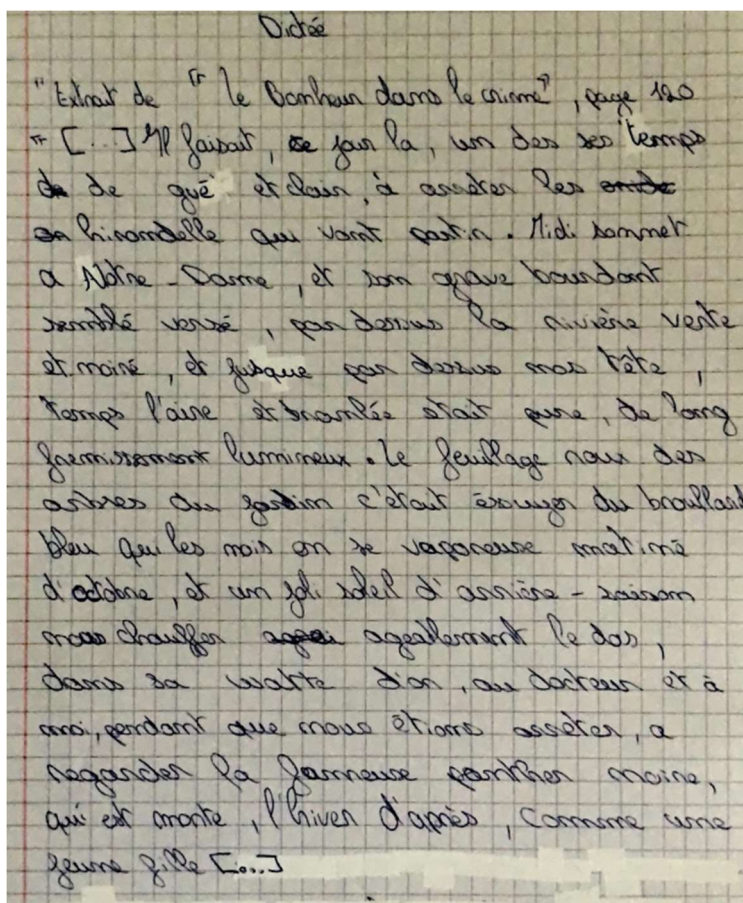 Dictée
" Extrait de " le Bonheur dans le crime", page 120
" [...] Il faisait, ce jour la, un des ses temps
de gué et clair, à arrêter les
hirondelle qui vont partir. Midi sonnet
a Nôtre-Dame, et son grave bourdont
semblé versé, par dessus la rivière verte
et moiré, et jusque par dessus nos tête,
temps l'aire et branlée était pure, de long
fremissement lumineux. Le feuillage roux des
arbres du jardin c'était éssuyer du brouillard
bleu qui les nois en se vaporeuse matiné
d'octobre, et un joli soleil d'arrière-saison
nous chauffer agéablement le dos,
dans sa watte d'or, au docteur et à
moi, pendant que nous étions arrêter, a
regarder la fameuse panther noire,
qui est morte, l'hiver d'après, comme une
jeune fille [...]